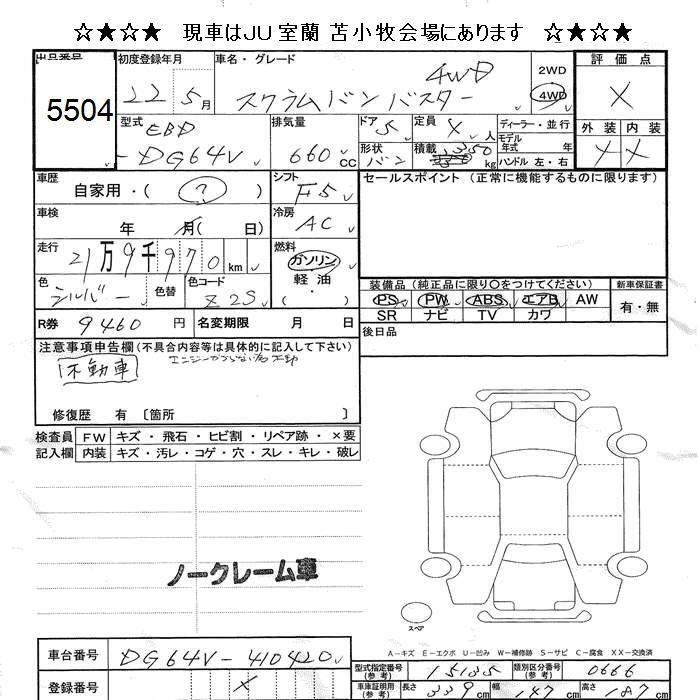 ☆★☆★ 現車はJU室蘭 苫小牧会場にあります ☆★☆★
出品番号 初度登録年月 車名・グレード 評価点
5504 22 5月 スクラムバンバスター 4WD 2WD 4WD X
型式 排気量 ドア 定員 ディーラー・並行 外装 内装
EBD 5 X人 モデル年式 年 X X
-DG64V 660cc 形状 バン 積載 350kg ハンドル 左・右
車歴 シフト セールスポイント (正常に機能するものに限ります)
自家用・( ? ) F5
車検 冷房
年 月( 日) AC
走行 燃料
21万9千970km ガソリン
色 色替 色コード 軽油
シルバー Z2S ・( )
装備品 (純正品に限り〇をつけてください) 新車保証書
PS PW ABS エアB AW 有・無
SR ナビ TV カワ
R券 9460円 名変期限 月 日
後日品
注意事項申告欄(不具合内容等は具体的に記入して下さい)
不動車 エンジンかからない為不動
修復歴 有 〔箇所 〕
検査員 FW キズ・飛石・ヒビ割・リペア跡・×要
記入欄 内装 キズ・汚レ・コゲ・穴・スレ・キレ・破レ
ノークレーム車
スペア
A-キズ E-エクボ U-凹み W-補修跡 S-サビ C-腐食 XX-交換済
車台番号 DG64V-410420
登録番号 X
型式指定番号(参考) 15135 類別区分番号(参考) 0666
車庫証明用(参考) 長さ 339cm 幅 147cm 高さ 187cm